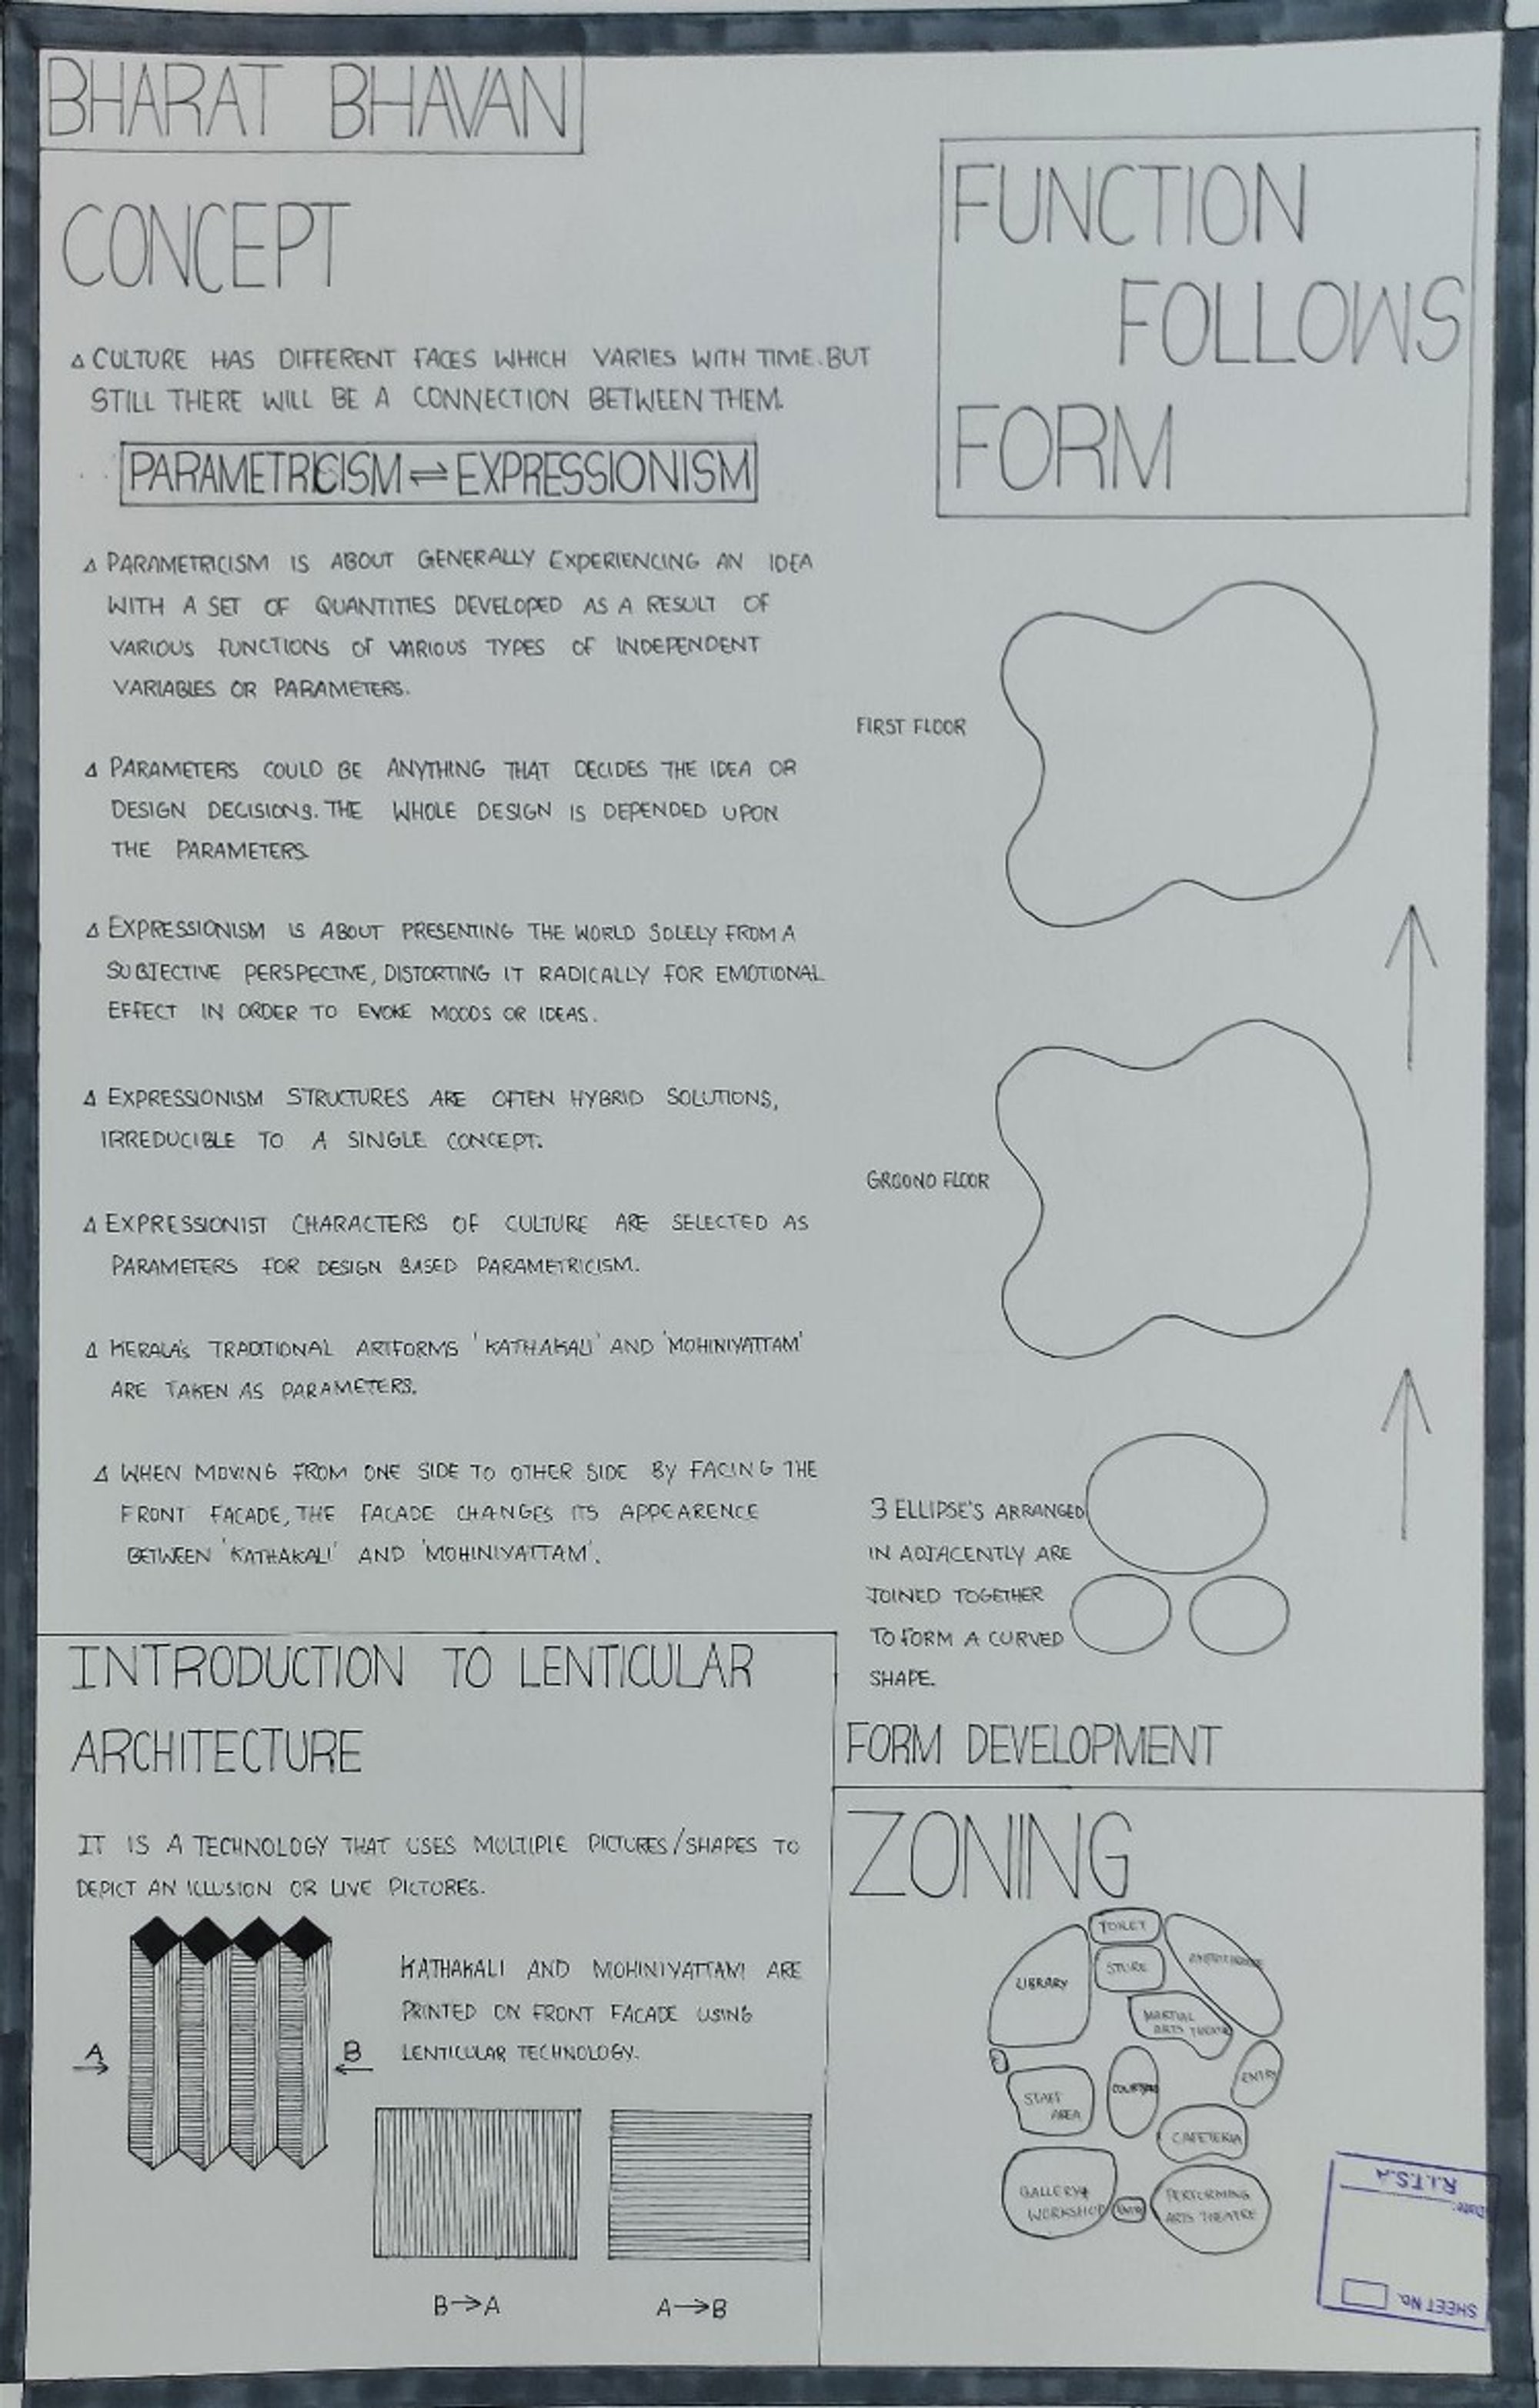 BHARAT BHAVAN
CONCEPT
Δ CULTURE HAS DIFFERENT FACES WHICH VARIES WITH TIME. BUT
STILL THERE WILL BE A CONNECTION BETWEEN THEM.
PARAMETRICISM ⇌ EXPRESSIONISM
Δ PARAMETRICISM IS ABOUT GENERALLY EXPERIENCING AN IDEA
WITH A SET OF QUANTITIES DEVELOPED AS A RESULT OF
VARIOUS FUNCTIONS OF VARIOUS TYPES OF INDEPENDENT
VARIABLES OR PARAMETERS.
Δ PARAMETERS COULD BE ANYTHING THAT DECIDES THE IDEA OR
DESIGN DECISIONS. THE WHOLE DESIGN IS DEPENDED UPON
THE PARAMETERS
Δ EXPRESSIONISM IS ABOUT PRESENTING THE WORLD SOLELY FROM A
SUBJECTIVE PERSPECTIVE, DISTORTING IT RADICALLY FOR EMOTIONAL
EFFECT IN ORDER TO EVOKE MOODS OR IDEAS.
Δ EXPRESSIONISM STRUCTURES ARE OFTEN HYBRID SOLUTIONS,
IRREDUCIBLE TO A SINGLE CONCEPT.
Δ EXPRESSIONIST CHARACTERS OF CULTURE ARE SELECTED AS
PARAMETERS FOR DESIGN BASED PARAMETRICISM.
Δ KERALA'S TRADITIONAL ARTFORMS 'KATHAKALI' AND 'MOHINIYATTAM'
ARE TAKEN AS PARAMETERS.
Δ WHEN MOVING FROM ONE SIDE TO OTHER SIDE BY FACING THE
FRONT FACADE, THE FACADE CHANGES ITS APPEARENCE
BETWEEN 'KATHAKALI' AND 'MOHINIYATTAM'.
FUNCTION
FOLLOWS
FORM
FIRST FLOOR
GROUND FLOOR
3 ELLIPSE'S ARRANGED
IN ADJACENTLY ARE
JOINED TOGETHER
TO FORM A CURVED
SHAPE.
FORM DEVELOPMENT
INTRODUCTION TO LENTICULAR
ARCHITECTURE
IT IS A TECHNOLOGY THAT USES MULTIPLE PICTURES/SHAPES TO
DEPICT AN ILLUSION OR LIVE PICTURES.
KATHAKALI AND MOHINIYATTAM ARE
PRINTED ON FRONT FACADE USING
LENTICULAR TECHNOLOGY.
A
B
B→A
A→B
ZONING
TOILET
STORE
LIBRARY
MARTIAL
ARTS THEATRE
ENTRY
STAFF
AREA
COURTYARD
CAFETERIA
GALLERY+
WORKSHOP
ENTRY
PERFORMING
ARTS THEATRE
R.I.T.S.A
Date:
SHEET No.